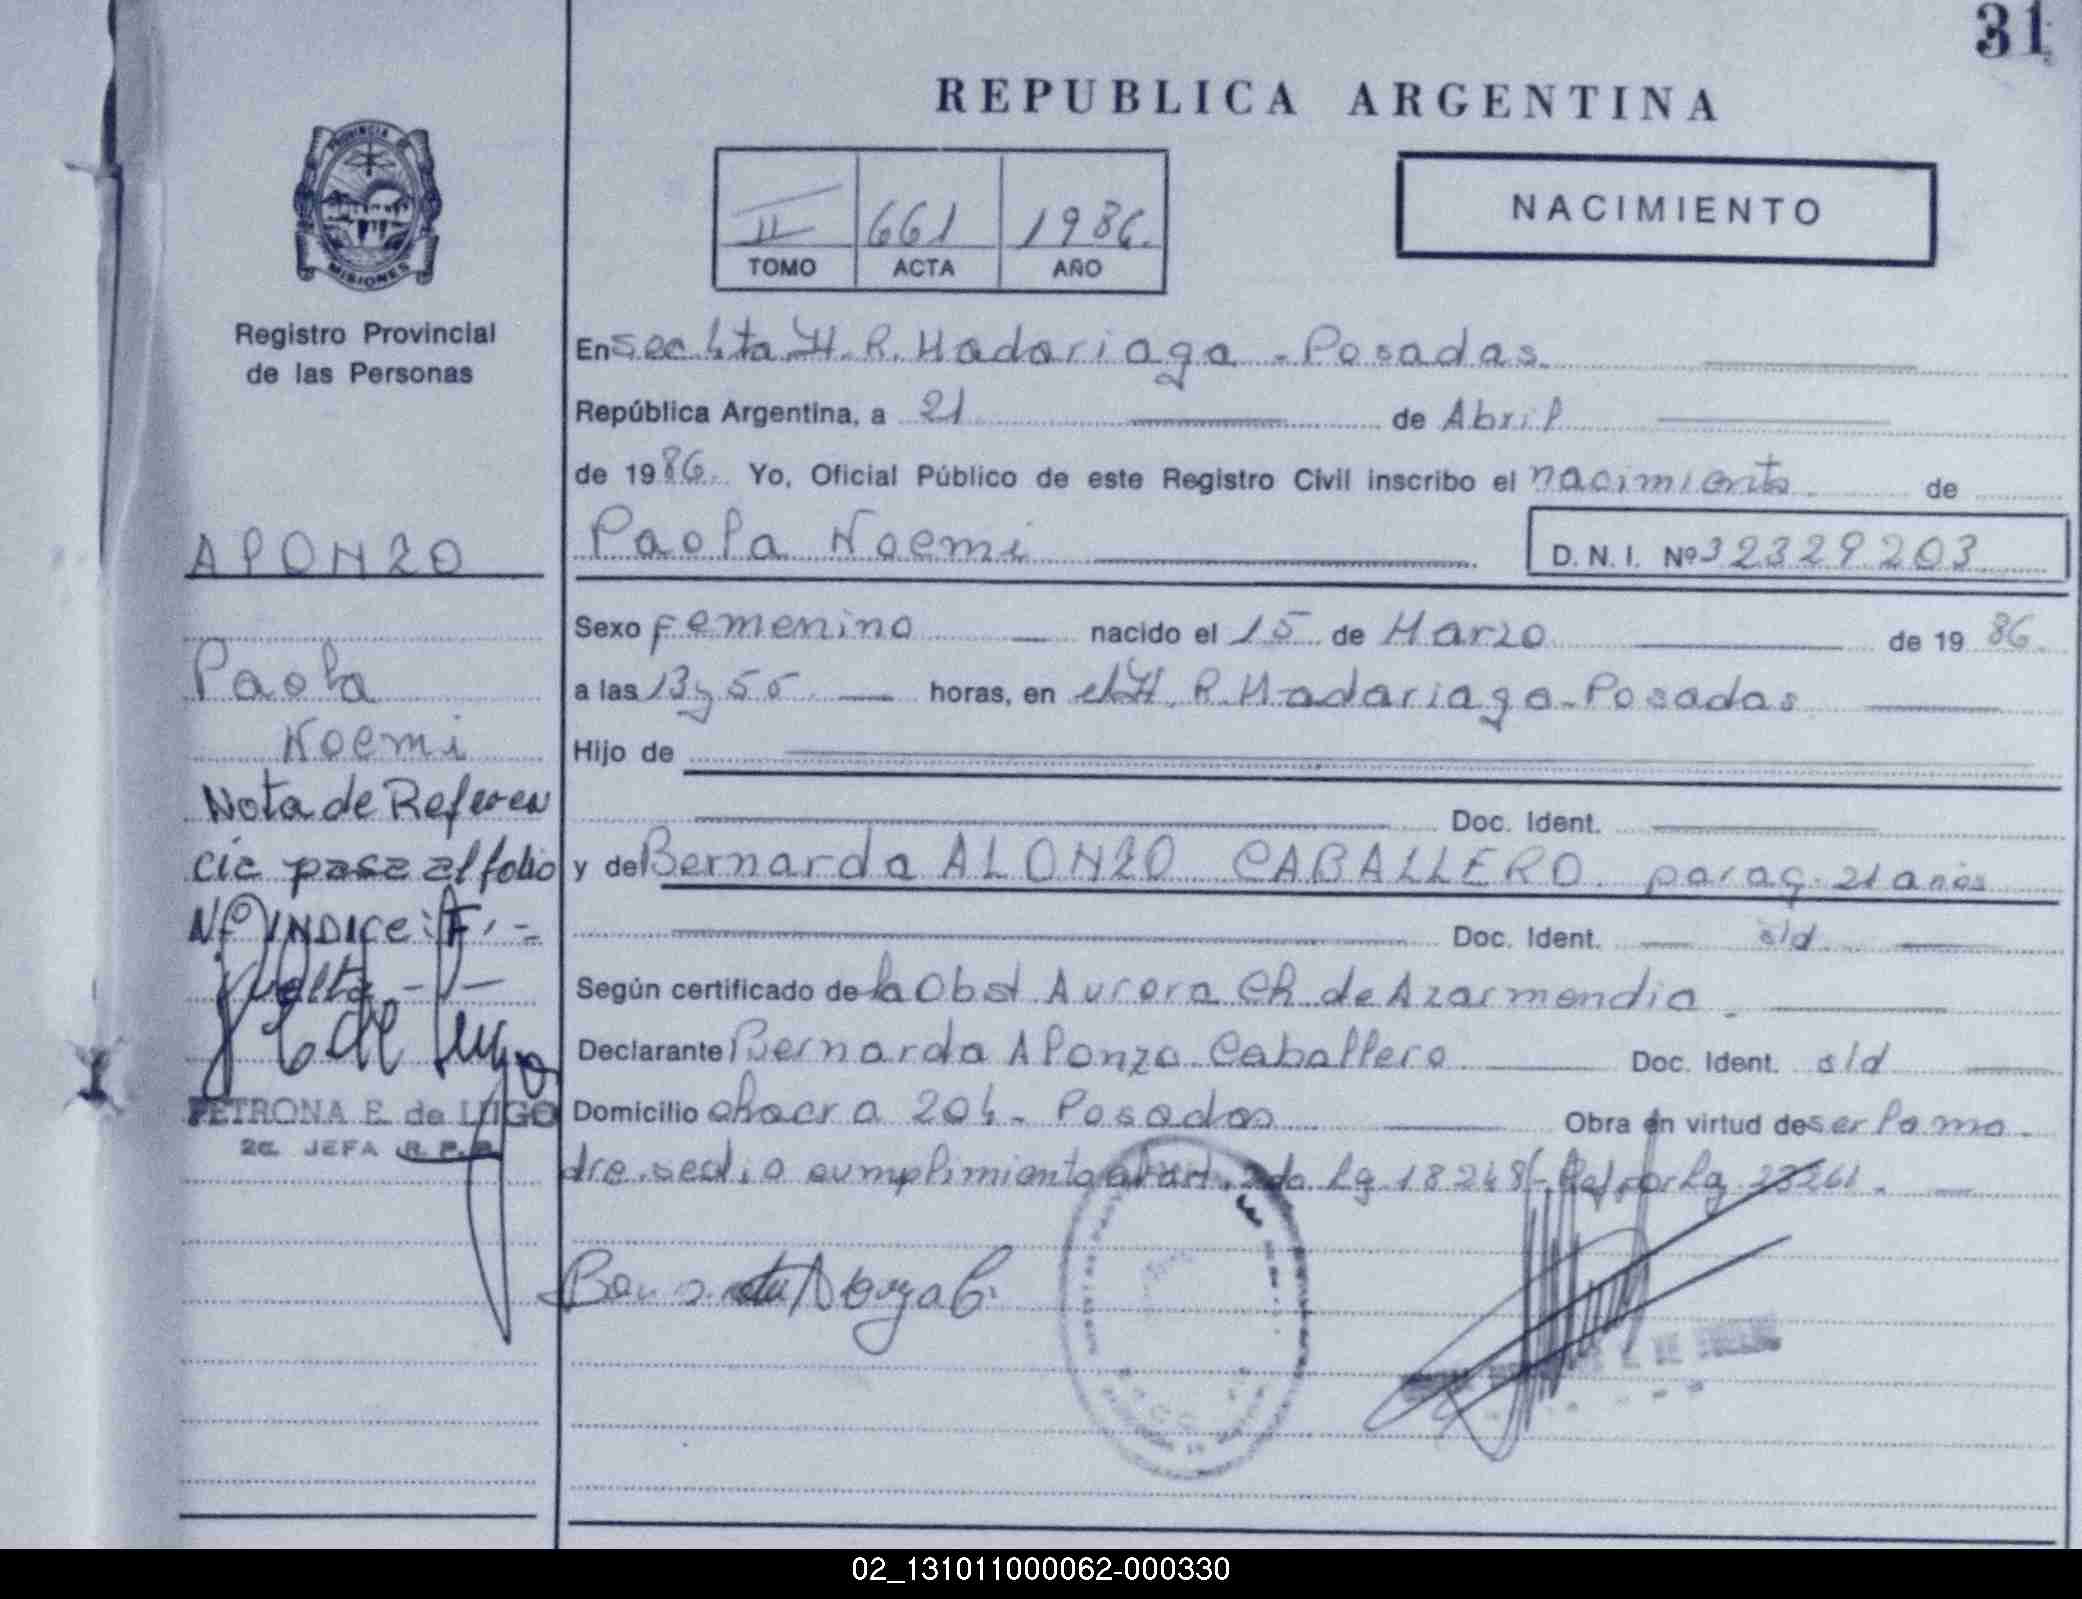 31
REPUBLICA ARGENTINA
PROVINCIA DE
MISIONES
II 661 1986.
TOMO ACTA AÑO
NACIMIENTO
Registro Provincial
de las Personas
En Sec 4ta H. R. Madariaga - Posadas.
República Argentina, a 21 de Abril
de 1986. Yo, Oficial Público de este Registro Civil inscribo el nacimiento de
Paola Noemi
D. N. I. Nº 32329203
Sexo Femenino nacido el 15 de Marzo de 1986.
a las 13 y 55 horas, en el H. R. Madariaga - Posadas
Hijo de
Doc. Ident.
y de Bernarda ALONZO CABALLERO parag. 21 años
Doc. Ident. s/d
Según certificado de la Obst Aurora Ch. de Azarmendia
Declarante Bernarda Alonzo Caballero Doc. Ident. s/d
Domicilio chacra 204 - Posadas Obra en virtud de ser la ma
dre. se dio cumplimiento al art. 2do Lg 18248/- Ref por Lg 23261.
ALONZO
Paola
Noemi
Nota de Referen
cia pasa al folio
Nº INDICE: F. -
Vuelta - -
PETRONA E. de LUGO
2a. JEFA R. P. P.
02_131011000062-000330